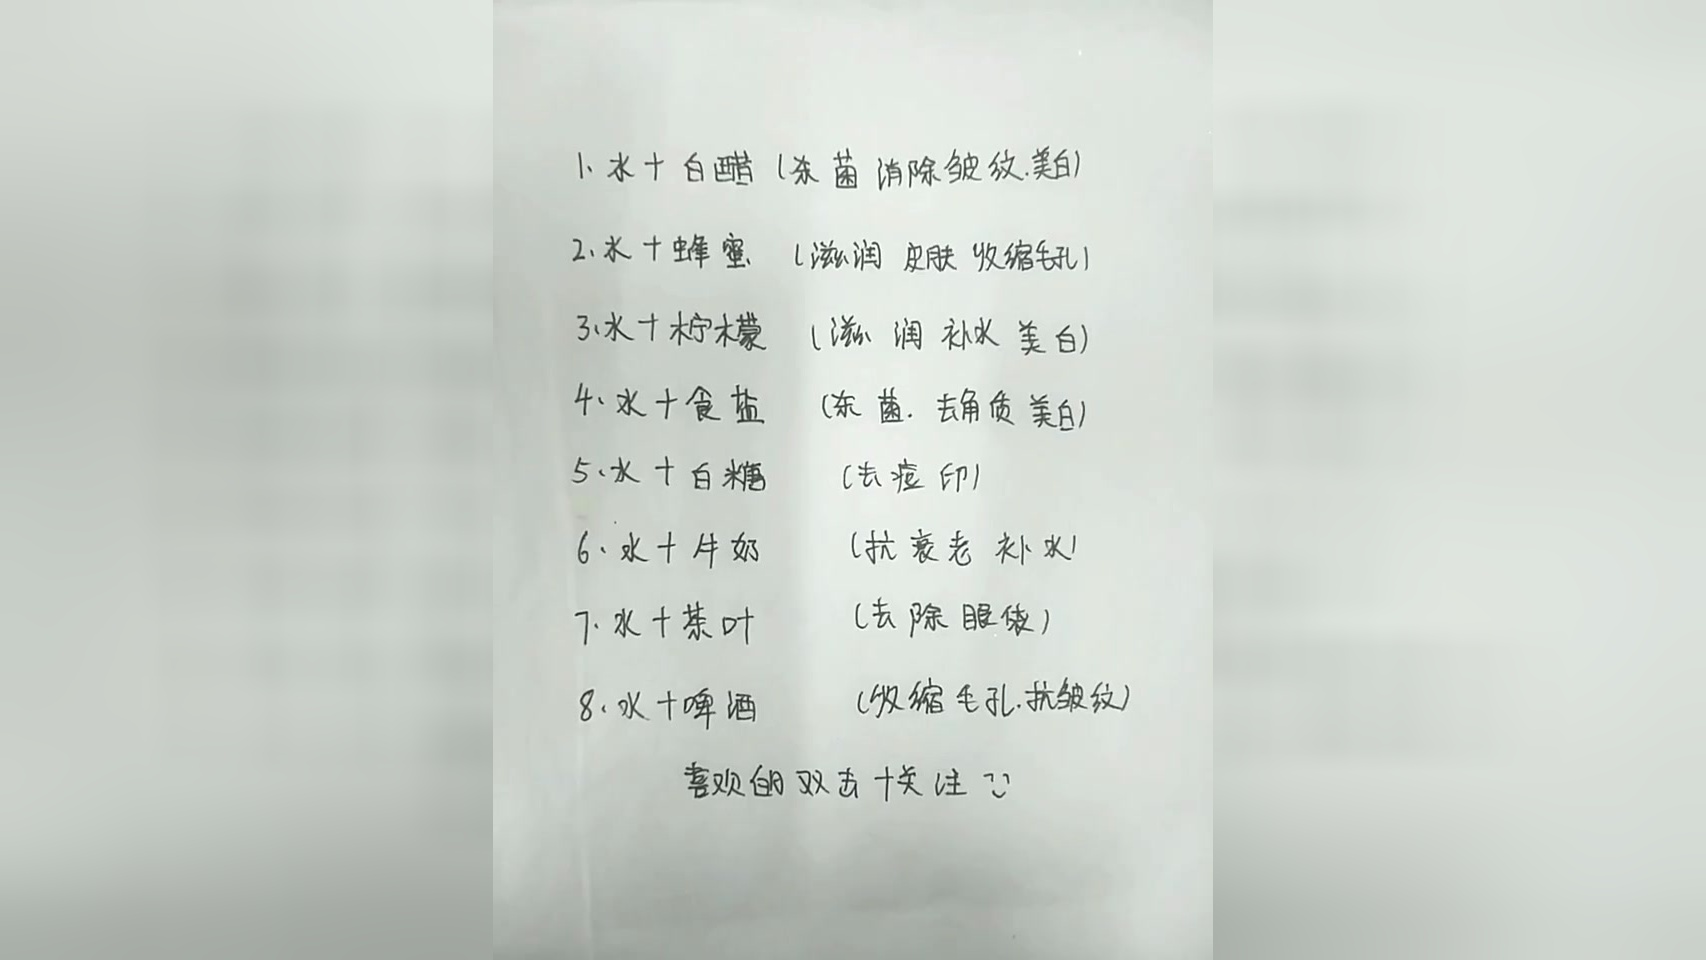 1、水+白醋(杀菌消除皱纹.美白)
2、水+蜂蜜(滋润皮肤收缩毛孔)
3、水+柠檬(滋润补水美白)
4、水+食盐(杀菌.去角质美白)
5、水+白糖(去痘印)
6、水+牛奶(抗衰老补水)
7、水+茶叶(去除眼袋)
8、水+啤酒(收缩毛孔.抗皱纹)
喜欢的双击+关注